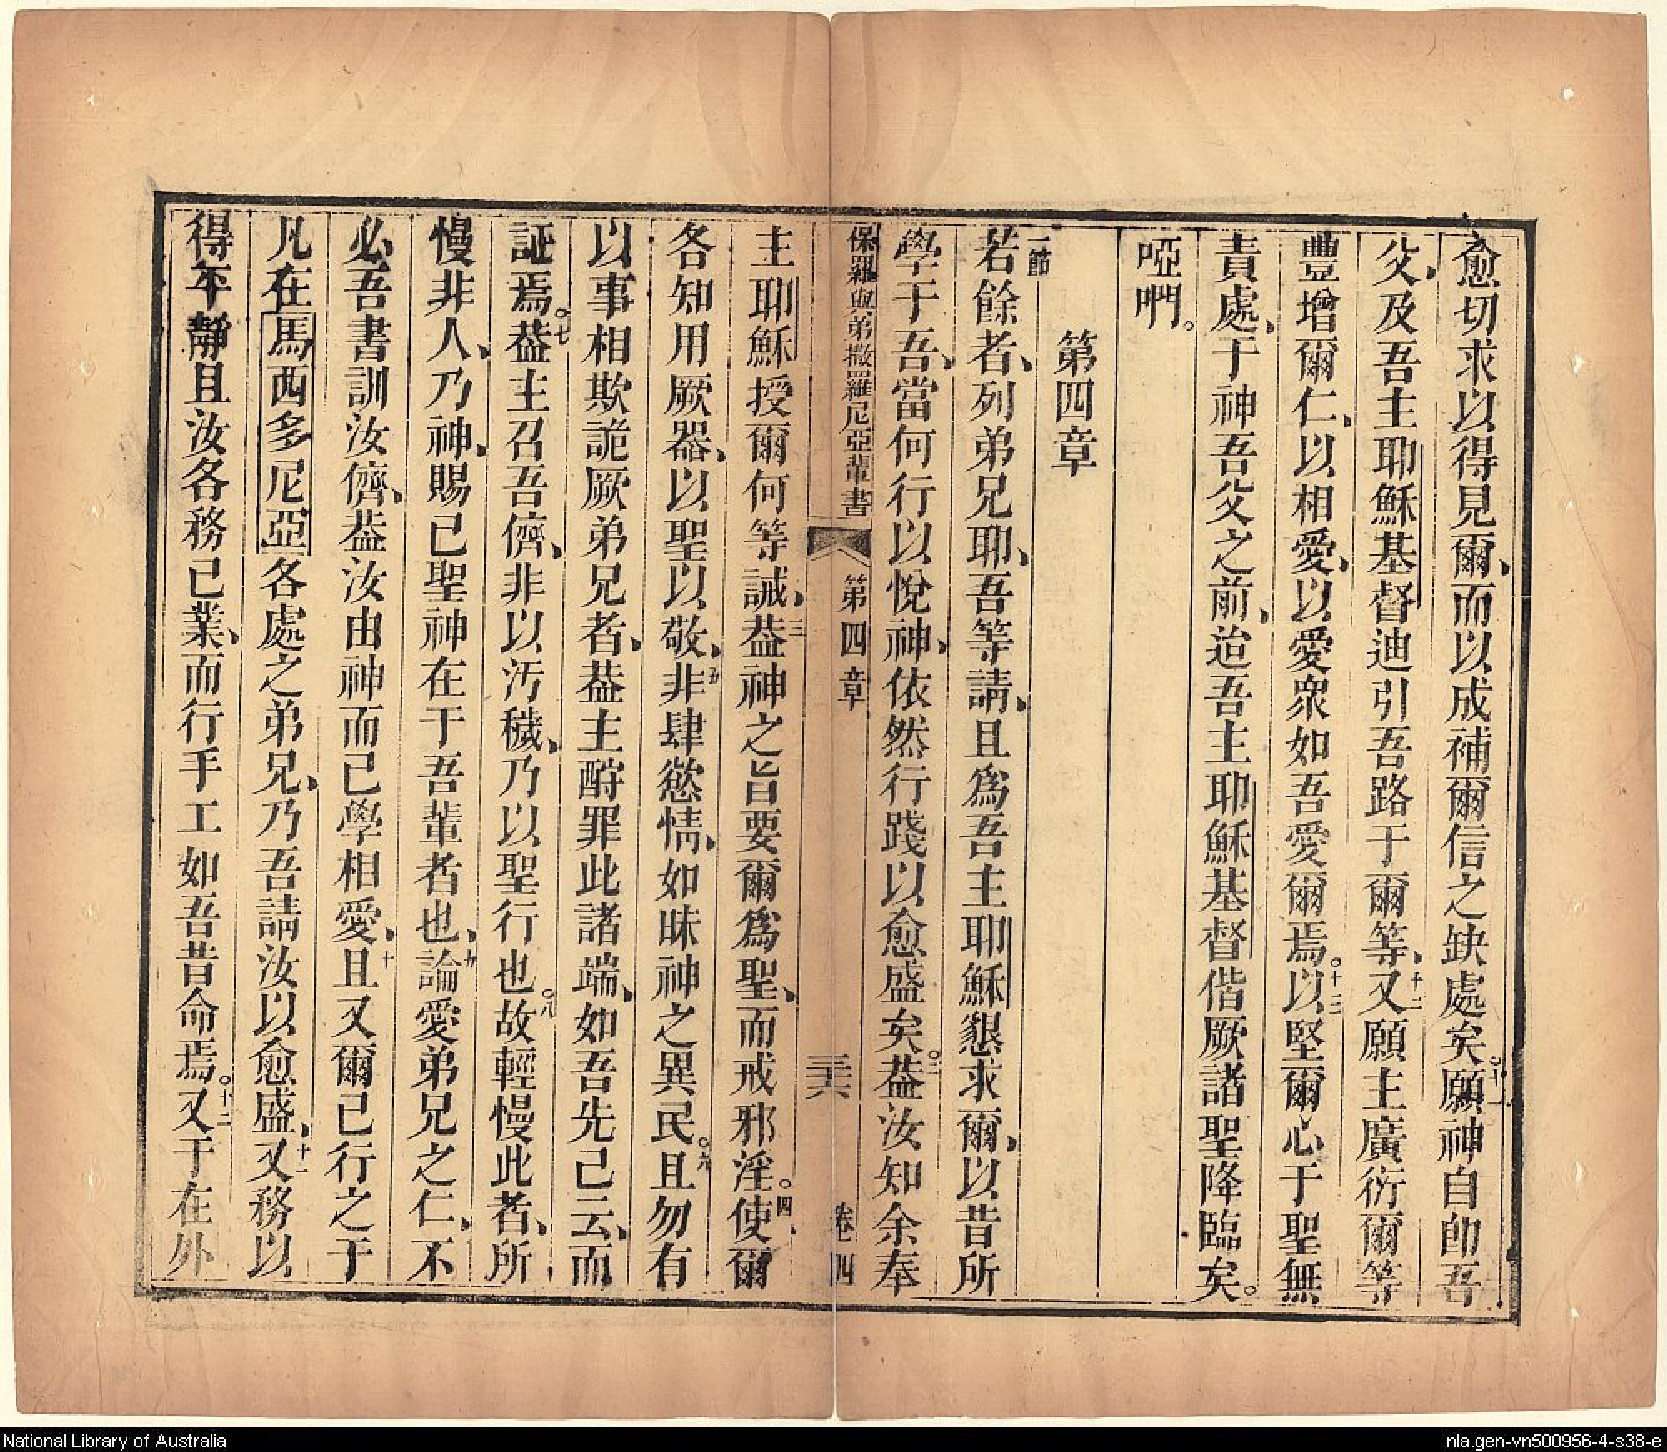 愈切求以得見爾、而以成補爾信之缺處矣。十一願神自即吾
父、及吾主耶穌基督迪引吾路于爾等、十二又願主廣衍爾等
豐增爾仁、以相愛、以愛衆如吾愛爾焉。十三以堅爾心于聖無
責處、于神吾父之前、迨吾主耶穌基督偕厥諸聖降臨矣。
啞㗧。
第四章
一節若餘者、列弟兄耶、吾等請、且爲吾主耶穌懇求爾、以昔所
學于吾、當何行以悅神、依然行踐以愈盛矣。二葢汝知余奉
保羅與弟撒羅尼亞輩書 第四章 三十六 卷四
主耶穌授爾何等誡、三葢神之旨要爾爲聖、而戒邪淫。四使爾
各知用厥器、以聖以敬、五非肆慾情、如昧神之異民。六且勿有
以事相欺詭厥弟兄者、葢主酧罪此諸端、如吾先已云、而
証焉。七葢主召吾儕、非以汚穢、乃以聖行也。八故輕慢此者、所
慢非人、乃神、賜已聖神在于吾輩者也、九論愛弟兄之仁、不
必吾書訓汝儕、葢汝由神而已學相愛、十且又爾已行之于
凡在馬西多尼亞各處之弟兄、乃吾請汝以愈盛、十一又務以
得平靜且汝各務已業、而行手工如吾昔命焉。十二又于在外
National Library of Australia
nla.gen-vn500956-4-s38-e